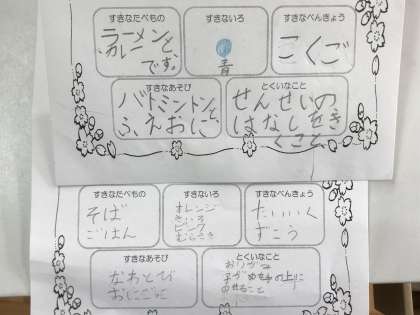 すきなたべもの
ラーメンと、
カレー
です。
すきないろ
青
すきなべんきょう
こくご
すきなあそび
バトミントンと、
ふえおに
とくいなこと
せんせいの
はなしをき
くこと、
すきなたべもの
そば
ごはん
すきないろ
オレンジ
きいろ
ピンク
むらさき
すきなべんきょう
たいいく
ずこう
すきなあそび
なわとび
おにごっこ
とくいなこと
のせること